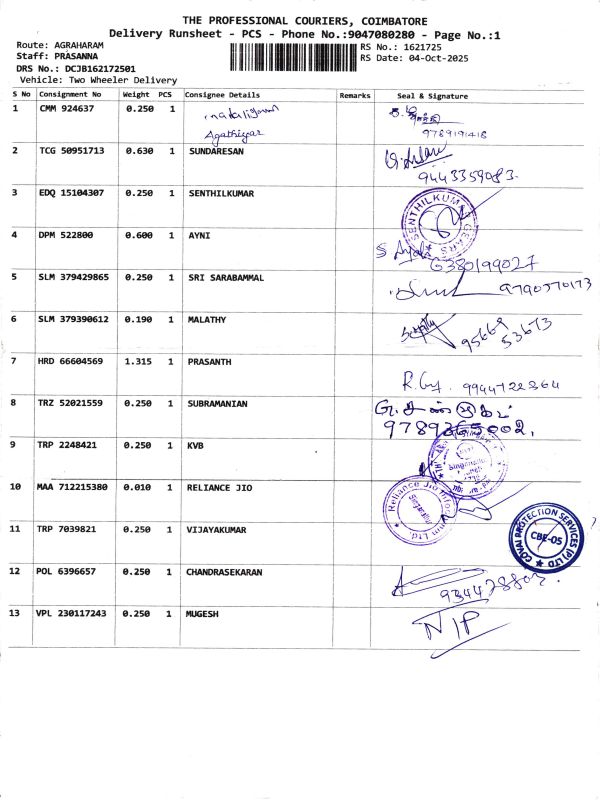 THE PROFESSIONAL COURIERS, COIMBATORE
Delivery Runsheet - PCS - Phone No.:9047080280 - Page No.:1
Route: AGRAHARAM
Staff: PRASANNA
DRS No.: DCJB162172501
Vehicle: Two Wheeler Delivery
RS No.: 1621725
RS Date: 04-Oct-2025
S No Consignment No Weight PCS Consignee Details Remarks Seal & Signature
1 CMM 924637 0.250 1
Agathiyar
9789191418
2 TCG 50951713 0.630 1 SUNDARESAN
9443359083
3 EDQ 15104307 0.250 1 SENTHILKUMAR
SENTHILKUMAR GEARS
4 DPM 522800 0.600 1 AYNI
6380199027
5 SLM 379429865 0.250 1 SRI SARABAMMAL
9790370173
6 SLM 379390612 0.190 1 MALATHY
95669 53673
7 HRD 66604569 1.315 1 PRASANTH
9944722364
8 TRZ 52021559 0.250 1 SUBRAMANIAN
9789365002
9 TRP 2248421 0.250 1 KVB
10 MAA 712215380 0.010 1 RELIANCE JIO
Reliance Jio Infocomm Ltd.
Singanallur
11 TRP 7039821 0.250 1 VIJAYAKUMAR
COVAI PROTECTION SERVICES (P) LTD
CBE-05
12 POL 6396657 0.250 1 CHANDRASEKARAN
13 VPL 230117243 0.250 1 MUGESH
N/P